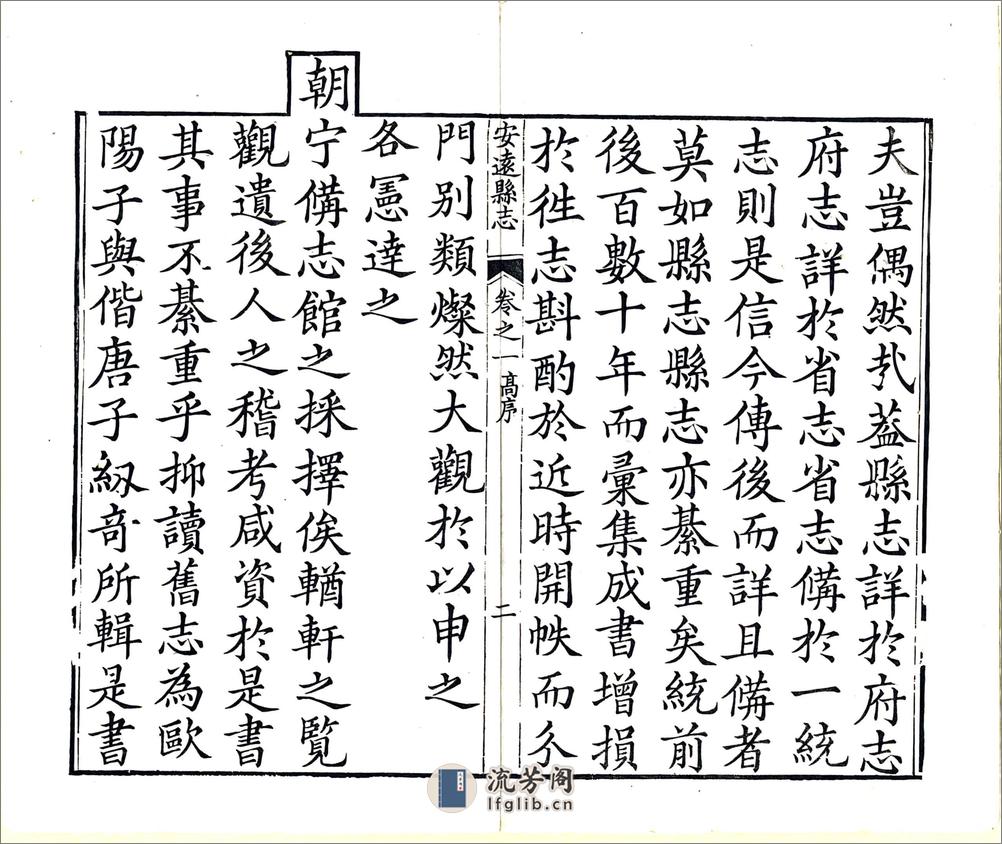 夫豈偶然㢤葢縣志詳於府志
府志詳於省志省志偹於一統
志則是信今傳後而詳且偹者
莫如縣志縣志亦綦重矣統前
後百數十年而彚集成書增損
於徃志斟酌於近時開帙而分
安遠縣志 卷之一 高序 二
門别類燦然大觀於以申之
各憲達之
朝宁偹志館之採擇俟輶軒之覽
觀遺後人之稽考咸資於是書
其事不綦重乎抑讀舊志為歐
陽子與偕唐子紉竒所輯是書
流芳阁
lfglib.cn